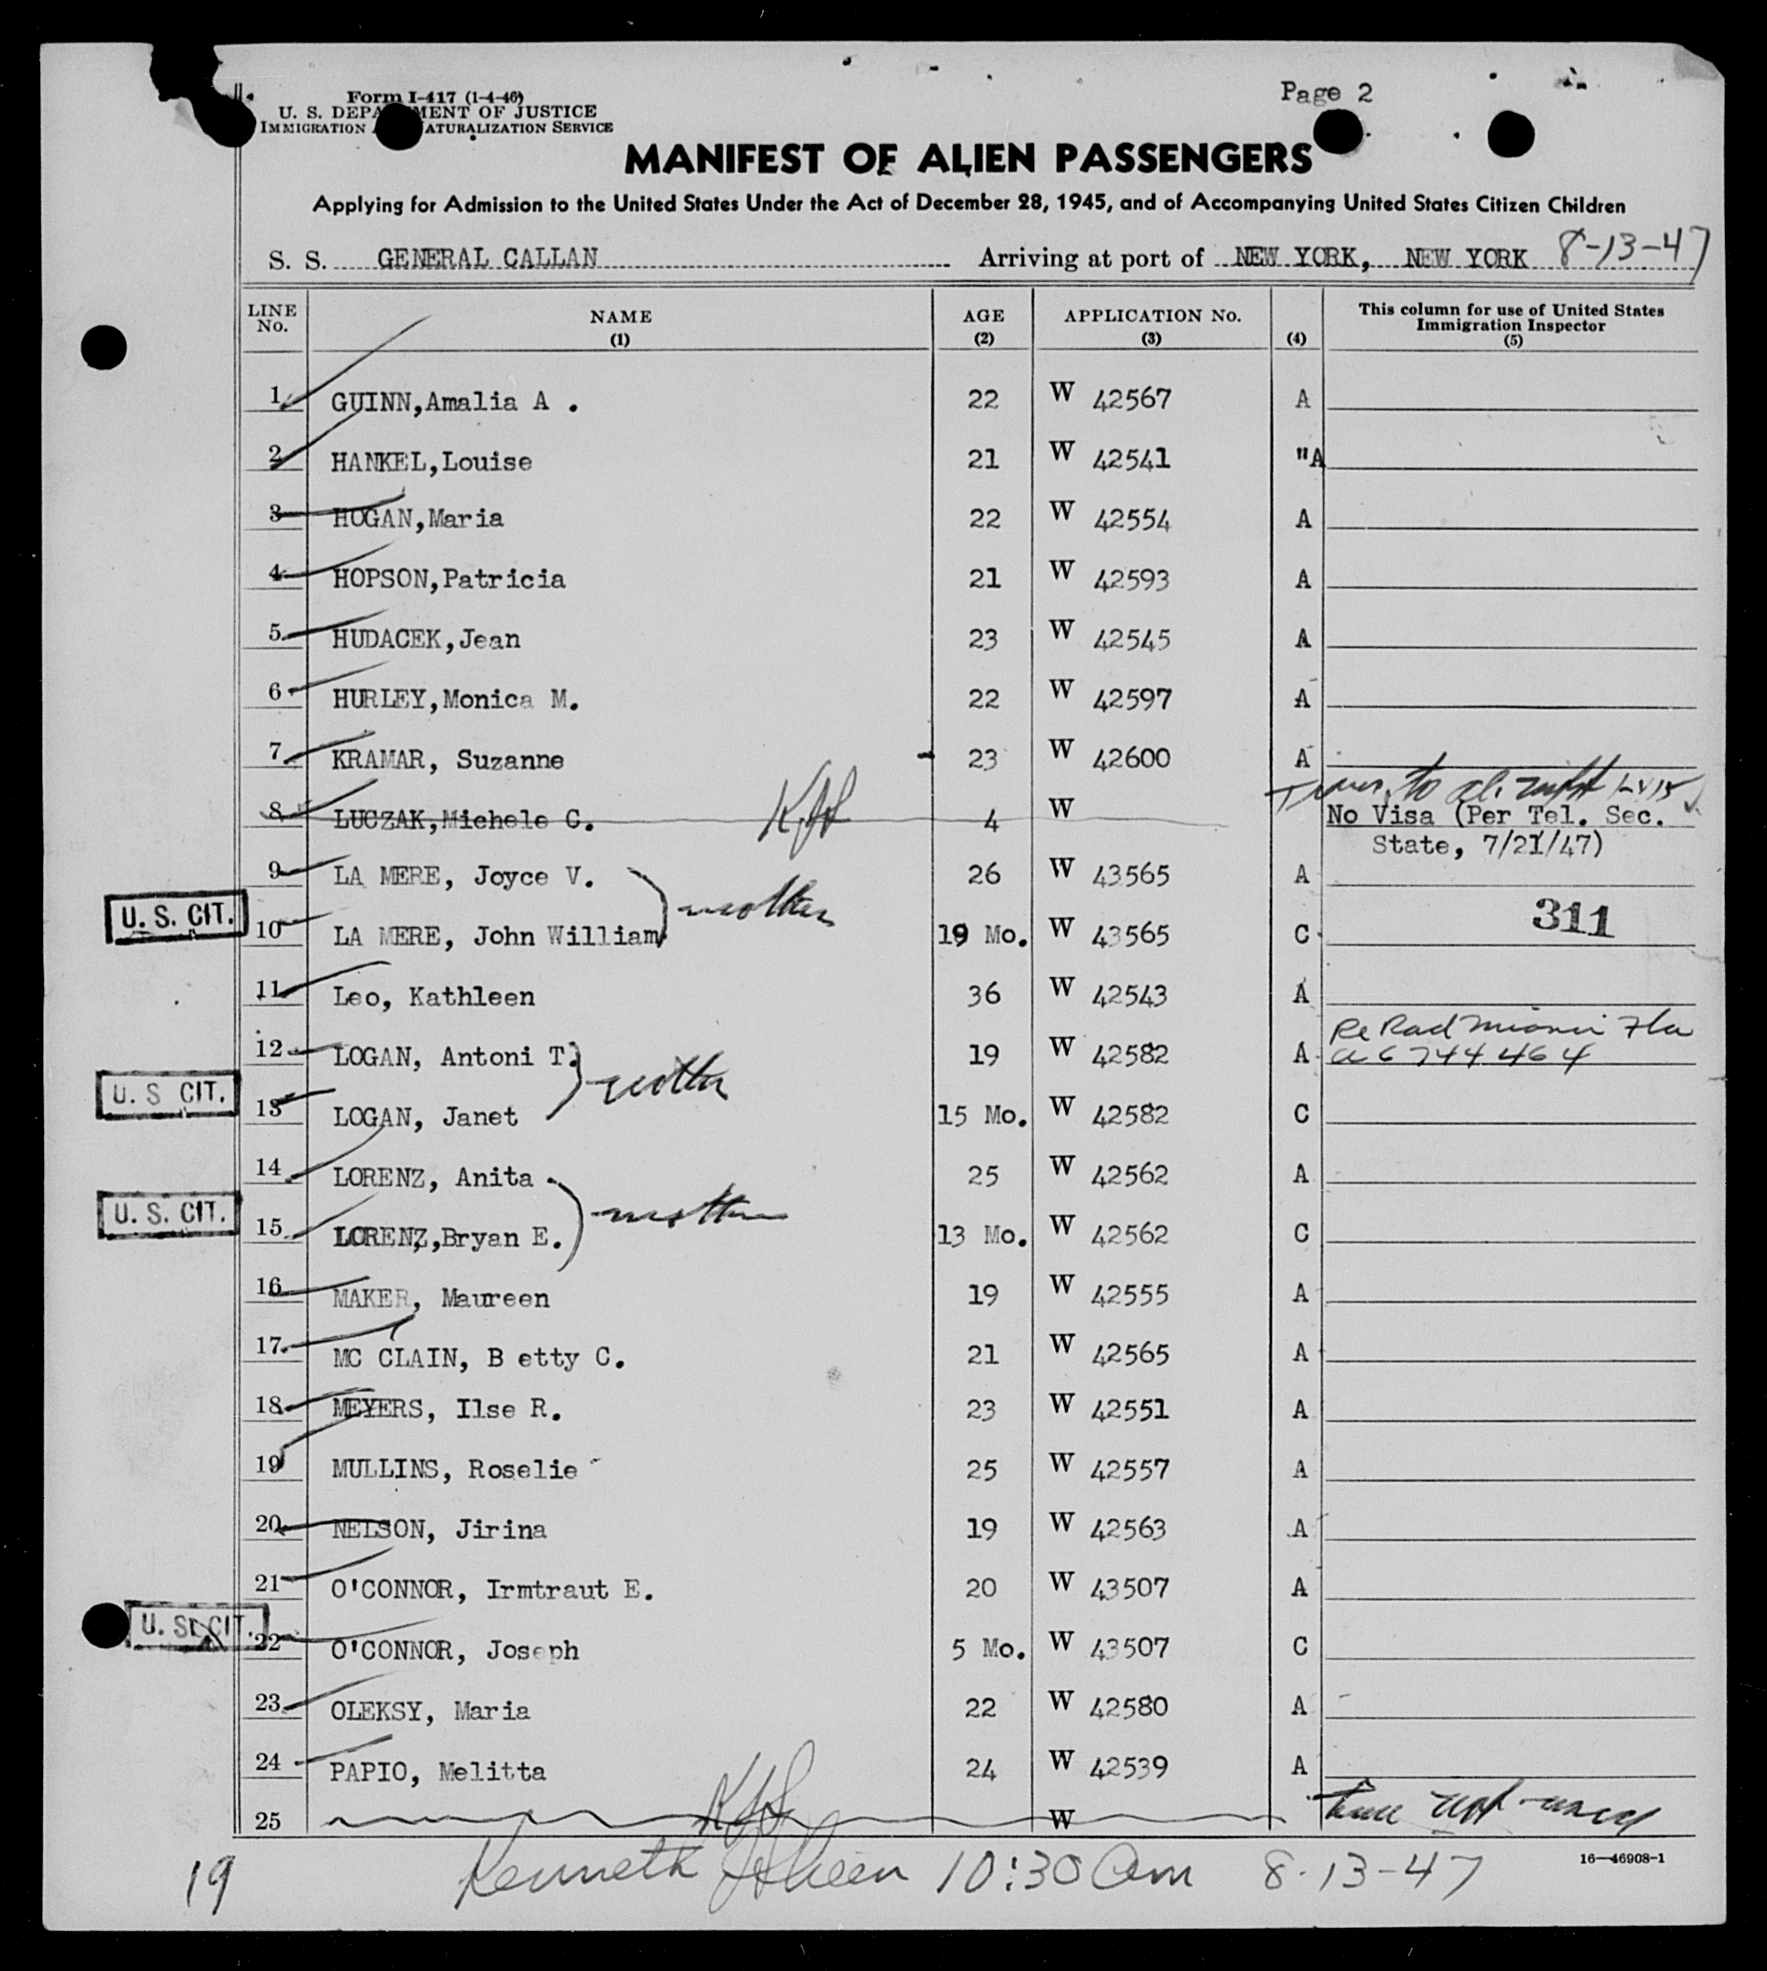 Form I-417 (1-4-46)
U. S. DEPARTMENT OF JUSTICE
IMMIGRATION AND NATURALIZATION SERVICE
Page 2
MANIFEST OF ALIEN PASSENGERS
Applying for Admission to the United States Under the Act of December 28, 1945, and of Accompanying United States Citizen Children
S. S. GENERAL CALLAN Arriving at port of NEW YORK, NEW YORK 8-13-47
LINE No. NAME (1) AGE (2) APPLICATION No. (3) (4) This column for use of United States Immigration Inspector (5)
1 GUINN,Amalia A . 22 W 42567 A
2 HANKEL,Louise 21 W 42541 "A
3 HOGAN,Maria 22 W 42554 A
4 HOPSON,Patricia 21 W 42593 A
5 HUDACEK,Jean 23 W 42545 A
6 HURLEY,Monica M. 22 W 42597 A
7 KRAMAR, Suzanne 23 W 42600 A
8 LUCZAK,Michele C. 4 W No Visa (Per Tel. Sec.
State, 7/21/47)
9 LA MERE, Joyce V. 26 W 43565 A
mother
U. S. CIT. 10 LA MERE, John William 19 Mo. W 43565 C 311
11 Leo, Kathleen 36 W 42543 A
Re Rad Miami Fla
12 LOGAN, Antoni T. 19 W 42582 A a6744464
mother
U. S CIT. 13 LOGAN, Janet 15 Mo. W 42582 C
14 LORENZ, Anita 25 W 42562 A
mother
U. S. CIT. 15 LORENZ,Bryan E. 13 Mo. W 42562 C
16 MAKER, Maureen 19 W 42555 A
17 MC CLAIN, B etty C. 21 W 42565 A
18 MEYERS, Ilse R. 23 W 42551 A
19 MULLINS, Roselie 25 W 42557 A
20 NELSON, Jirina 19 W 42563 A
21 O'CONNOR, Irmtraut E. 20 W 43507 A
U. S. CIT. 22 O'CONNOR, Joseph 5 Mo. W 43507 C
23 OLEKSY, Maria 22 W 42580 A
24 PAPIO, Melitta 24 W 42539 A
25 W not used
16—46908-1
19 Kenneth 10:30 am 8-13-47